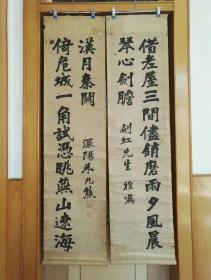 借老屋三間儘銷磨雨夕風晨
琴心劍膽
劍虹先生 雅嘱
倚危城一角試憑眺燕山遼海
漢月秦關
溧陽朱九熊